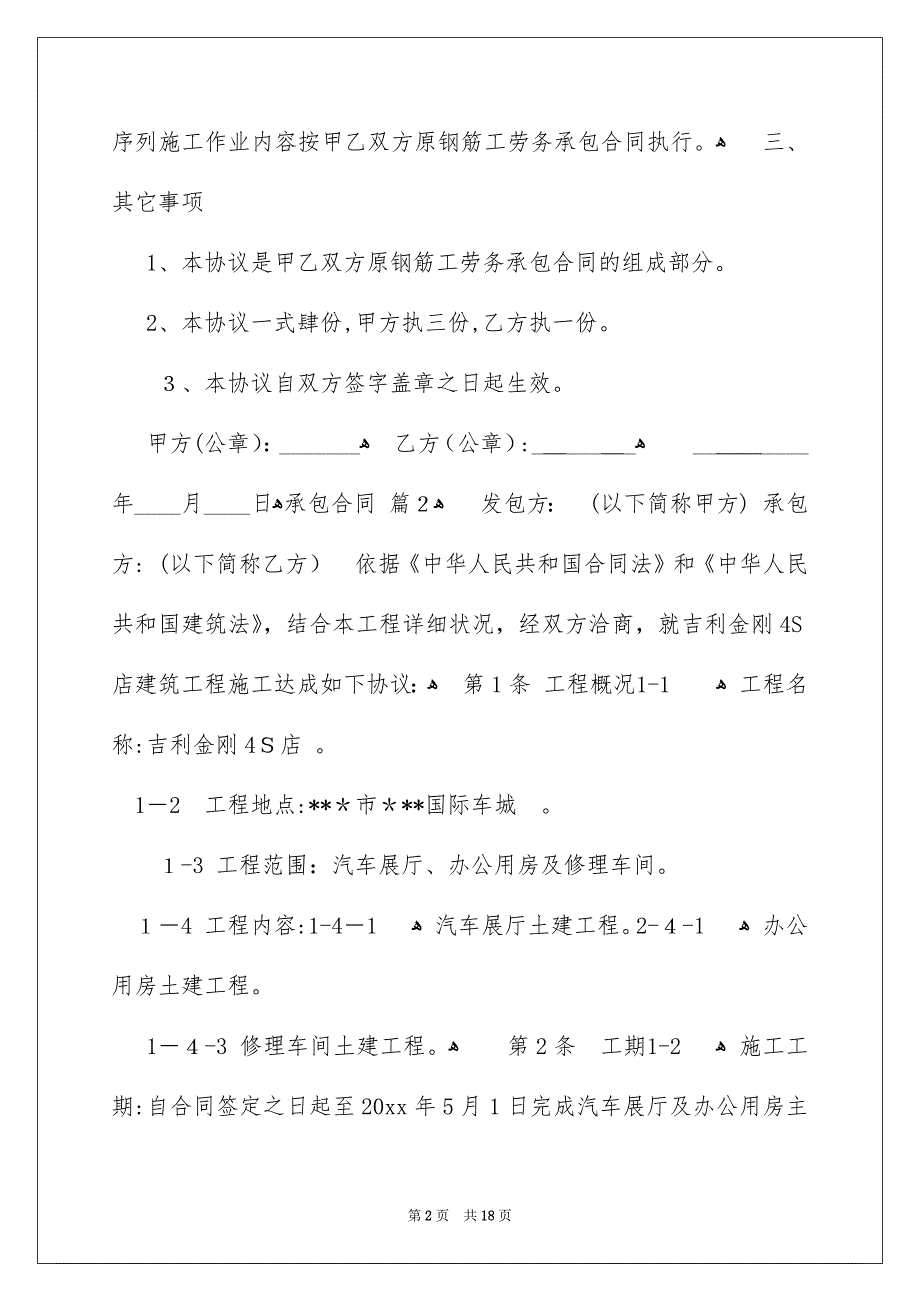 序列施工作业内容按甲乙双方原钢筋工劳务承包合同执行。ﻫ 三、
其它事项
1、本协议是甲乙双方原钢筋工劳务承包合同的组成部分。
2、本协议一式肆份,甲方执三份,乙方执一份。
３、本协议自双方签字盖章之日起生效。
甲方(公章)：_______ﻫ 乙方（公章）:_________ﻫ __________
年____月____日ﻫ承包合同 篇２ﻫ 发包方： (以下简称甲方) 承包
方: (以下简称乙方） 依据《中华人民共和国合同法》和《中华人民
共和国建筑法》，结合本工程详细状况，经双方洽商，就吉利金刚4S
店建筑工程施工达成如下协议：ﻫ 第１条 工程概况1-1 ﻫ 工程名
称:吉利金刚４Ｓ店 。
1－2 工程地点:**＊市＊**国际车城 。
１-3 工程范围：汽车展厅、办公用房及修理车间。
１－4 工程内容:1-4－1 ﻫ 汽车展厅土建工程。2-４-1 ﻫ 办公
用房土建工程。
1－４-3 修理车间土建工程。ﻫ 第２条 工期1-2 ﻫ 施工工
期:自合同签定之日起至 20xx 年５月１日完成汽车展厅及办公用房主
第 2 页 共 18 页